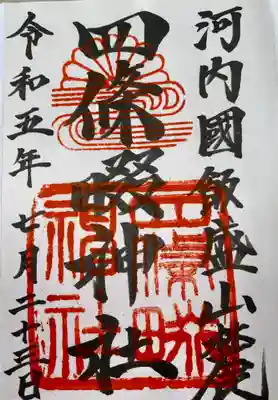 河内國飯盛山麓
四條畷神社
四條畷神社
令和五年 七月二十三日